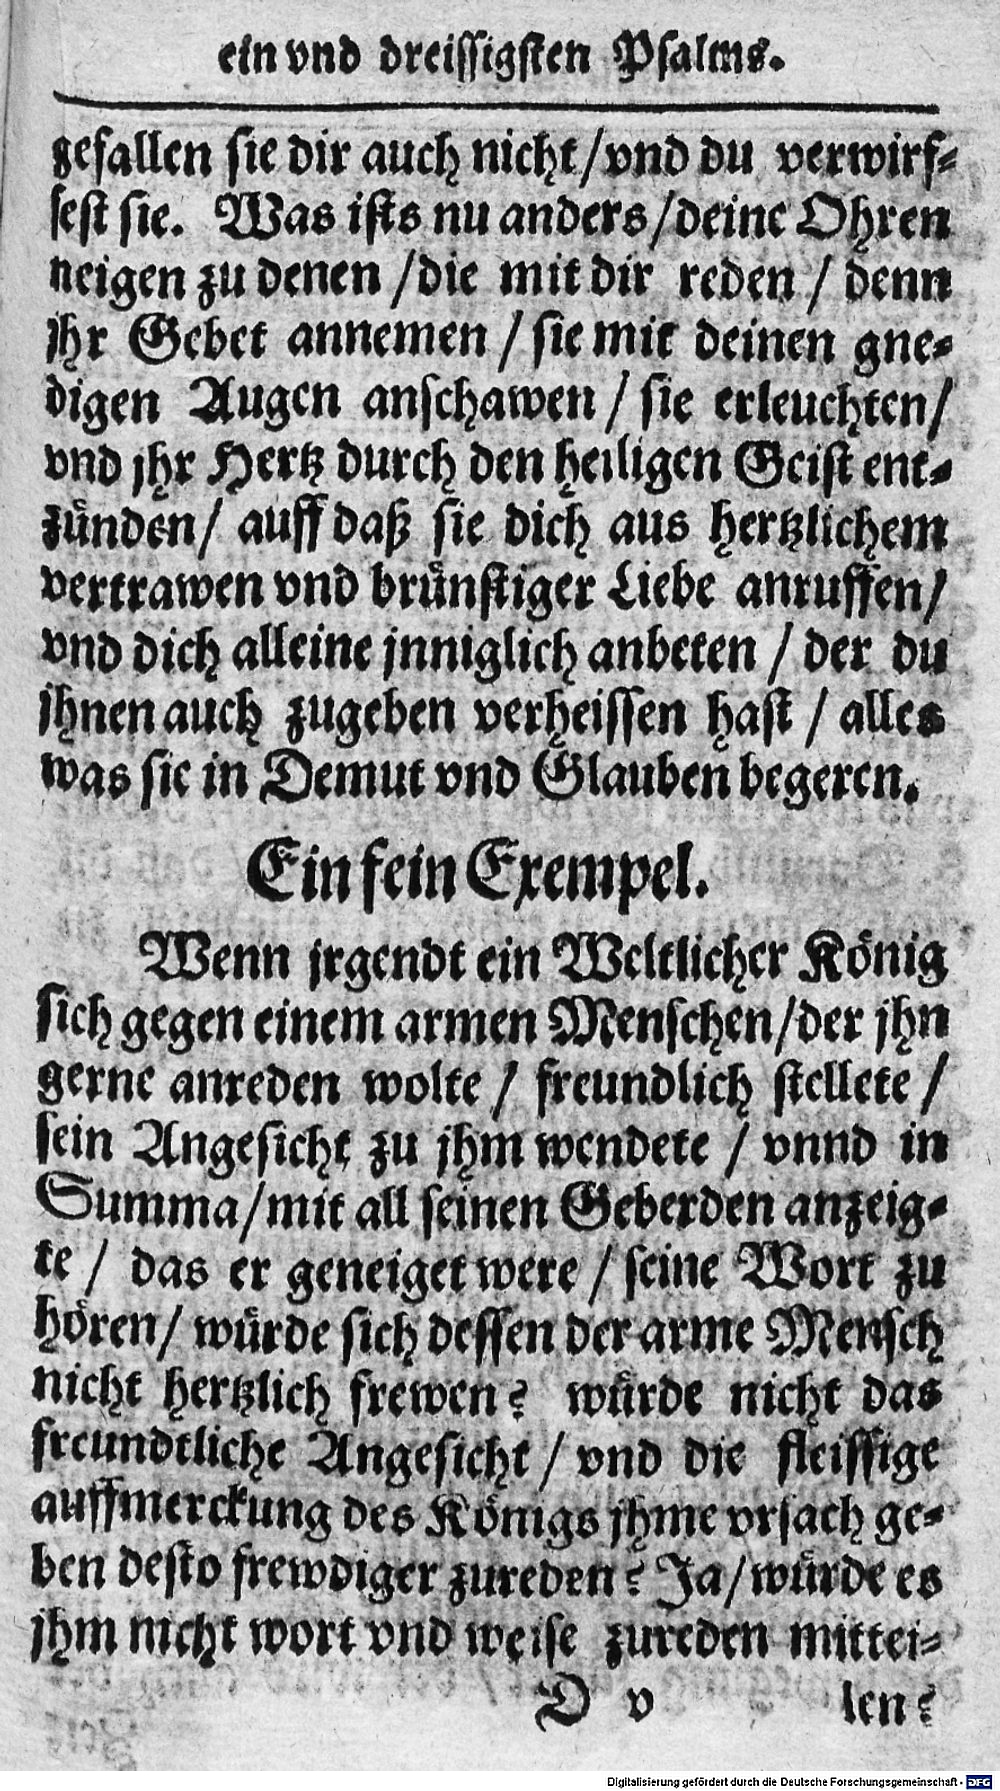 ein vnd dreissigsten Psalms.
gefallen sie dir auch nicht/vnd du verwirf-
fest sie. Was ists nu anders/deine Ohren
neigen zu denen/die mit dir reden/denn
jhr Gebet annemen/sie mit deinen gne-
digen Augen anschawen/sie erleuchten/
vnd jhr Hertz durch den heiligen Geist ent-
zünden/auff daß sie dich aus hertzlichem
vertrawen vnd brünstiger Liebe anruffen/
vnd dich alleine jnniglich anbeten/der du
jhnen auch zugeben verheissen hast/alles
was sie in Demut vnd Glauben begeren.
Ein fein Exempel.
Wenn jrgendt ein Weltlicher König
sich gegen einem armen Menschen/der jhn
gerne anreden wolte/freundlich stellete/
sein Angesicht zu jhm wendete/vnnd in
Summa/mit all seinen Geberden anzeig-
te/das er geneiget were/seine Wort zu
hören/würde sich dessen der arme Mensch
nicht hertzlich frewen? würde nicht das
freundtliche Angesicht/vnd die fleissige
auffmerckung des Königs jhme vrsach ge-
ben desto frewdiger zureden? Ja/würde es
jhm nicht wort vnd weise zureden mittei-
D v len?
Digitalisierung gefördert durch die Deutsche Forschungsgemeinschaft - DFG